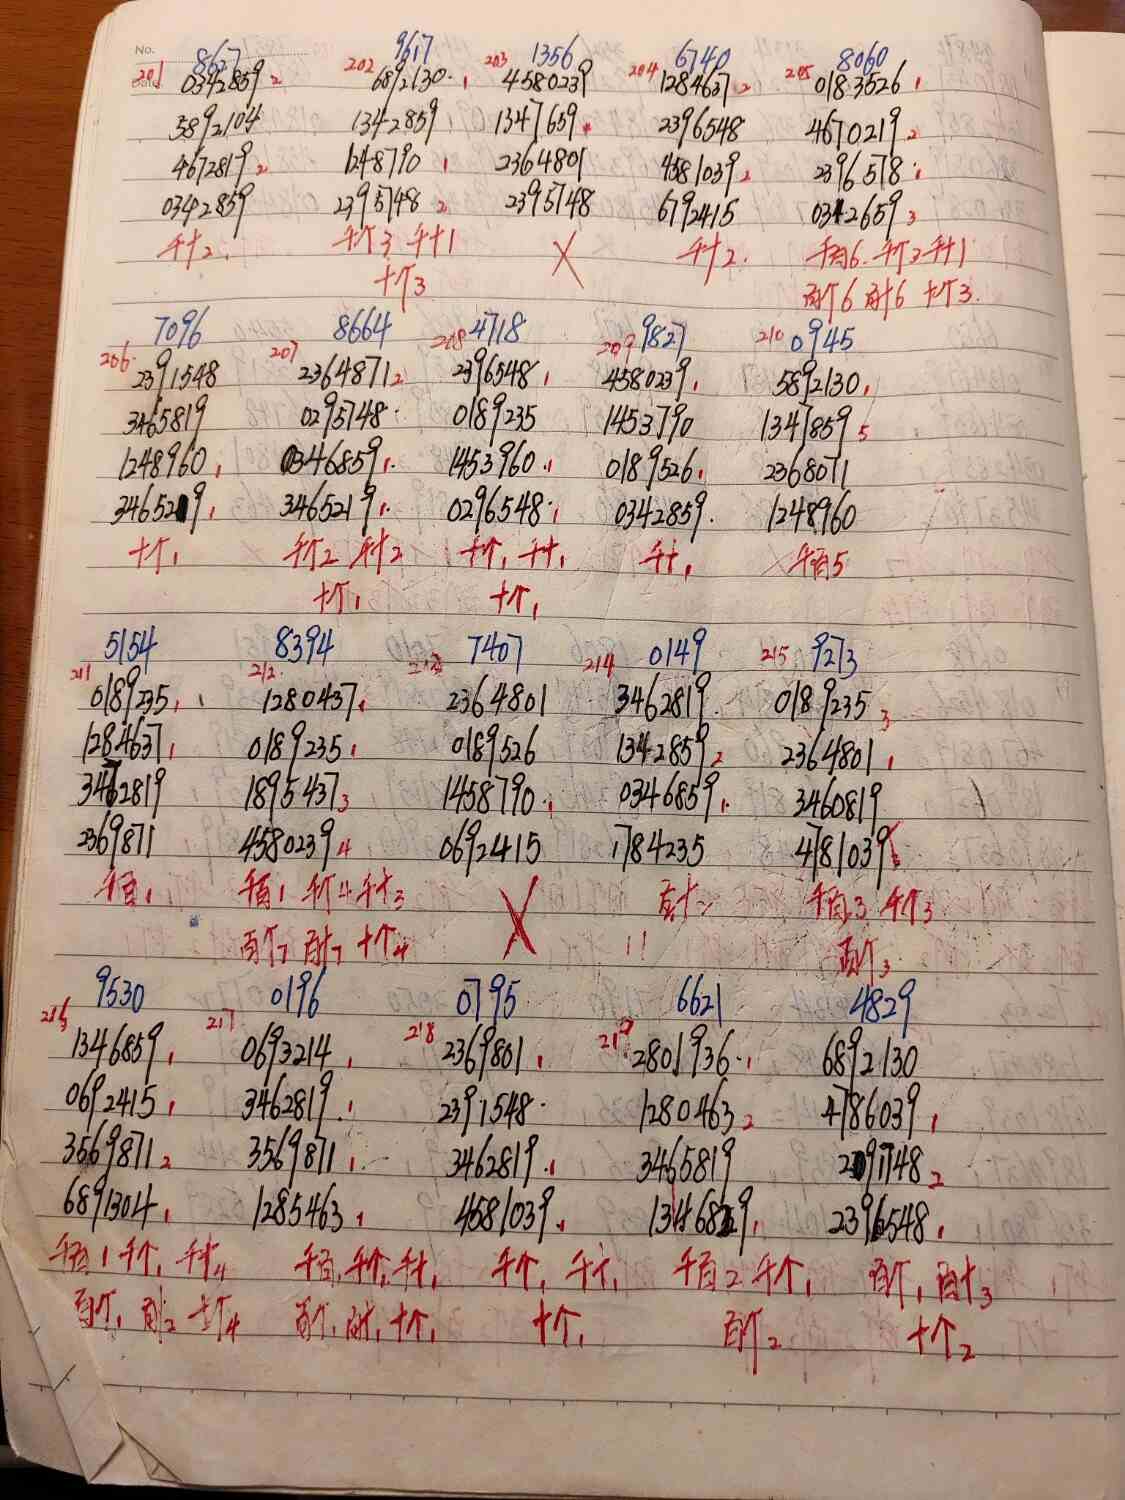 No.
8627 9617 1356 6740 8060
201 0342859 2 202 6892130 1 203 4580239 204 1284637 2 205 0183526 1
5892104 1342859 1347659 2396548 4670219 2
4672819 2 1248790 1 2364801 4581039 2 2396578 1
0342859 2395748 2 2395748 6792415 0342659 3
千十2 千个3 千十1 X 千十2 千百6 千个3 千十1
十个3 百个6 百十6 十个3
7096 8664 4718 9827 0945
206 2391548 207 2364871 2 208 2396548 1 209 4580239 1 210 5892130 1
3465819 0295748 0189235 1453790 1347859 5
1248960 1 0346859 1 1453960 1 0189526 1 2368071
3465219 1 3465219 1 0296548 1 0342859 1248960
十个1 千个2 千十2 千个1 千十1 千十1 千百5
十个1 十个1
5154 8394 7407 0149 9273
211 0189235 1 212 1280437 1 213 2364801 214 3462819 215 0189235 3
1284637 1 0189235 1 0189526 1342859 2 2364801 1
3462819 1895437 3 1458790 1 0346859 1 3460819
2369871 4580239 4 0692415 1784235 4781039 3
千百1 千百1 千个4 千十3 X 百十2 千百3 千个3
百个7 百十7 十个4 百个3
9530 0196 0795 6621 4829
216 1346859 1 217 0693214 1 218 2369801 1 219 2801936 1 6892130
0692415 1 3462819 1 2391548 1280463 2 4786039 1
3569871 2 3569871 1 3462819 1 3465819 2091748 2
6891304 1 1285463 1 4581039 1 1346829 1 2396548 1
千百1 千个1 千十4 千百1 千个1 千十1 千个1 千十1 千百2 千个1 百个1 百十3
百个1 百十2 十个4 百个1 百十1 十个1 十个1 百个2 十个2